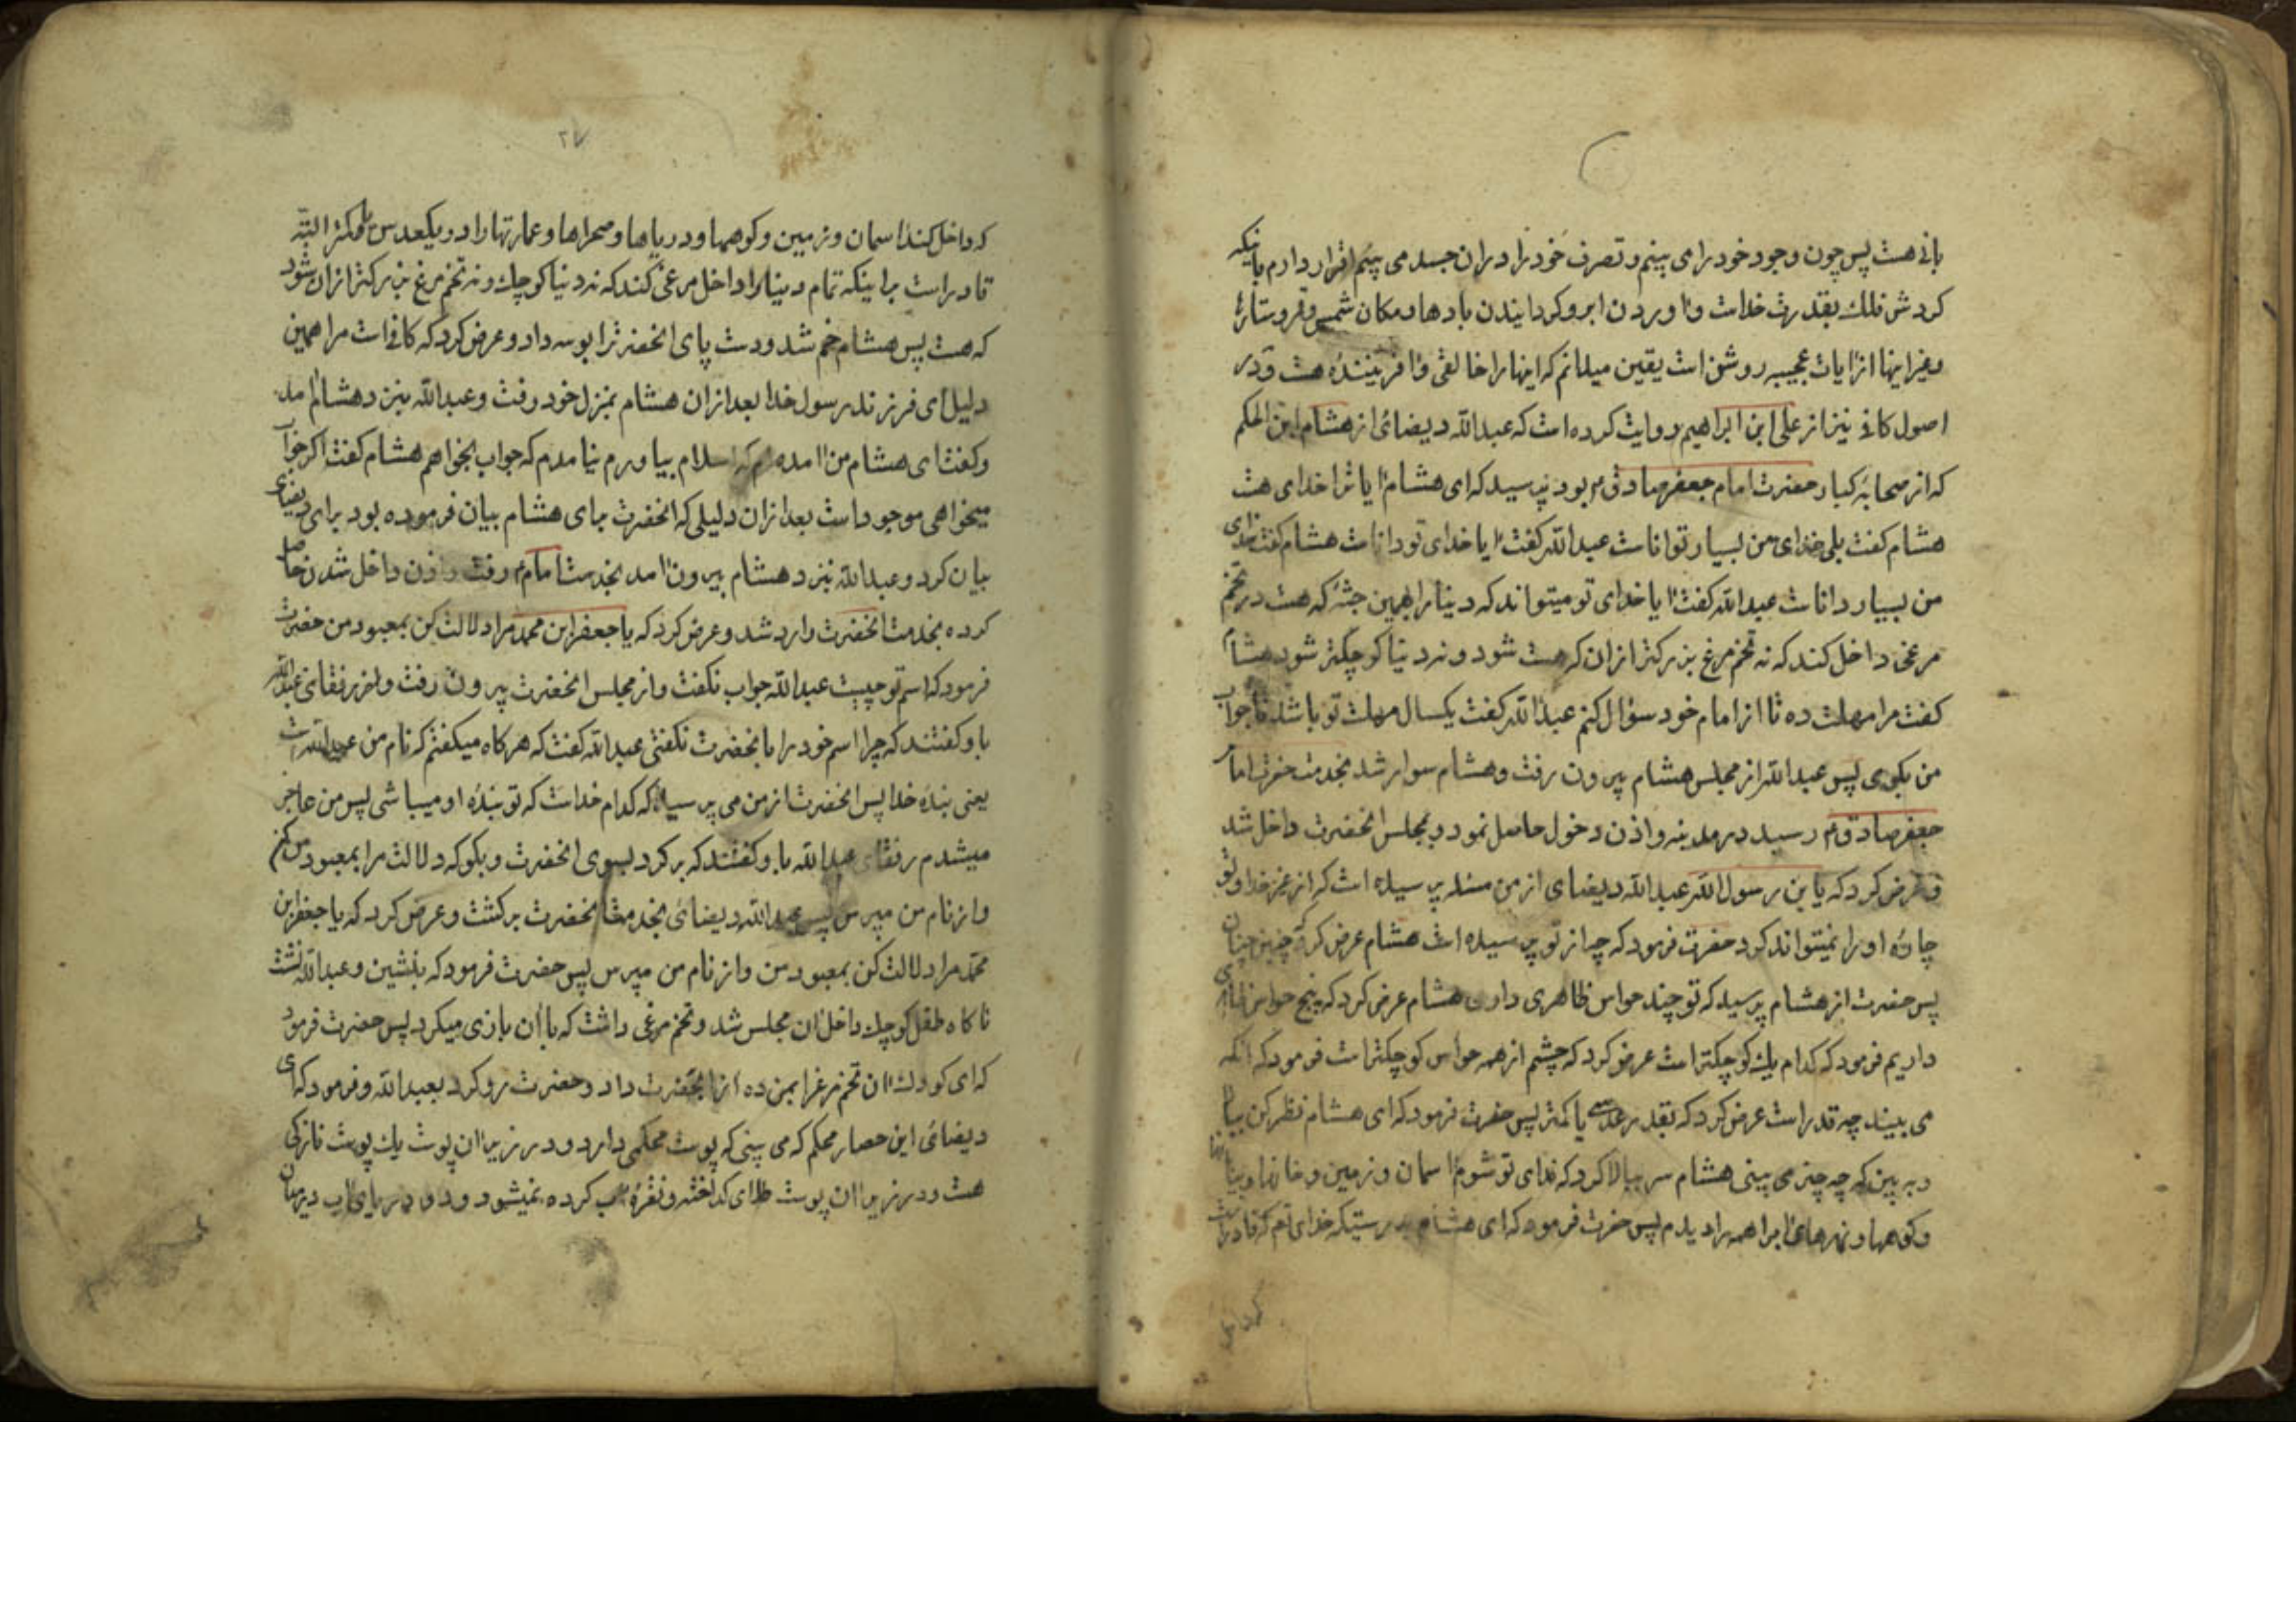 بانی هست پس چون وجود خود را می بینم و تصرف خود را در ان جسد می بینم اقرار دارم باینکه
کردش فلک بقدرت خداست و اوردن ابر و کردانیدن بادها و مکان شمس و قمر و ستارۀ
و غیر اینها از ایات عجیبه روشن است یقین میدانم که اینها را خالقی و افرینندۀ هست و در
اصول کافی نیز از علی ابن ابراهیم روایت کرده است که عبدالله دیضائی از هشام ابن الحکم
که از صحابۀ کبار حضرت امام جعفر صادق م بود پرسید که ای هشام ایا ترا خدای هست
هشام کفت بلی خدای من بسیار تواناست عبدالله کفت ایا خدای تو داناست هشام کفت خدای
من بسیار داناست عبدالله کفت ایا خدای تو میتواند که دنیا را بهمین جثۀ که هست در تخم
مرغی داخل کند که نه تخم مرغ بزرکتر از ان که هست شود و نه دنیا کوچکتر شود هشام
کفت مرا مهلت ده تا از امام خود سؤال کنم عبدالله کفت یکسال مهلت تو باشد تا جواب
من بکوی پس عبدالله از مجلس هشام بیرون رفت و هشام سوار شد بخدمت حضرت امام
جعفر صادق م رسید در مدینه و اذن دخول حاصل نمود و بمجلس انحضرت داخل شد
و عرض کرد که یا بن رسول الله عبدالله دیضای از من مسئله پرسیده است که از غیر خدا و تو
چارۀ او را نمیتواند کرد حضرت فرمود که چه از تو پرسیده است هشام عرض کرد چنین چنان
پس حضرت از هشام پرسید که تو چند حواس ظاهری داری هشام عرض کرد که پنج حواس ظاهری
داریم فرمود که کدام یک کوچکتر است عرض کرد که چشم از همه حواس کوچکتر است فرمود که انکه
می بیند چه قدر است عرض کرد که بقدر عدسی یا کمتر پس حضرت فرمود که ای هشام نظر کن ببالا
و به بین که چه چیز می بینی هشام سر ببالا کرد که فدای تو شوم اسمان و زمین و خانها و بیابانها
و کوهها و نهرهای ابرا همه را دیدم پس حضرت فرمود که ای هشام بدرستیکه خدای تو هم که قادر است
که داخل
۲۷
که داخل کند اسمان و زمین و کوهها و دریاها و صحراها و عمارتها را در یکعدس یا کمتر البته
قادر است براینکه تمام دنیا را داخل مرغی کند که نه دنیا کوچک و نه تخم مرغ بزرکتر از ان شود
که هست پس هشام خم شد و دست پای انحضرترا بوسه داد و عرض کرد که کافی است مرا همین
دلیل ای فرزند رسول خدا بعد از ان هشام بمنزل خود رفت و عبدالله بنزد هشام امد
و کفت ای هشام من امده ام که اسلام بیاورم نیامدم که جواب بخواهم هشام کفت اکر جواب
میخواهی موجود است بعد از ان دلیلی که انحضرت برای هشام بیان فرموده بود برای دیضای
بیان کرد و عبدالله نیز د هشام بیرون امد بخدمت امام م رفت و اذن داخل شدن حاصل
کرده بخدمت انحضرت وارد شد و عرض کرد که یا جعفر ابن محمد مرا دلالت کن بمعبود من حضرت
فرمود که اسم تو چیست عبدالله جواب نکفت و از مجلس انحضرت بیرون رفت و رفقای عبدالله
باو کفتند که چرا اسم خود را بانحضرت نکفتی عبدالله کفت که هرکاه میکفتم که نام من عبدالله است
یعنی بندۀ خدا پس انحضرت از من می پرسید که کدام خداست که تو بندۀ او میباشی پس من عاجز
میشدم رفقای عبدالله باو کفتند که برکرد بسوی انحضرت و بکو که دلالت مرا بمعبود من کن
و از نام من مپرس پس عبدالله دیضائی بخدمت انحضرت برکشت و عرض کرد که یا جعفر ابن
محمد مرا دلالت کن بمعبود من و از نام من مپرس پس حضرت فرمود که بنشین و عبدالله نشست
ناکاه طفل کوچک داخل ان مجلس شد و تخم مرغی داشت که با ان بازی میکرد پس حضرت فرمود
که ای کودک ان تخم مرغ را بمن ده انرا بحضرت داد و حضرت رو کرد بعبدالله و فرمود که ای
دیضائی این حصار محکم که می بینی که پوست محکمی دارد و در زیر ان پوست یک پوست نازکی
هست و در زیر ان پوست طلای کداخته و نقرۀ اب کرده نمیشود و در دریای اب